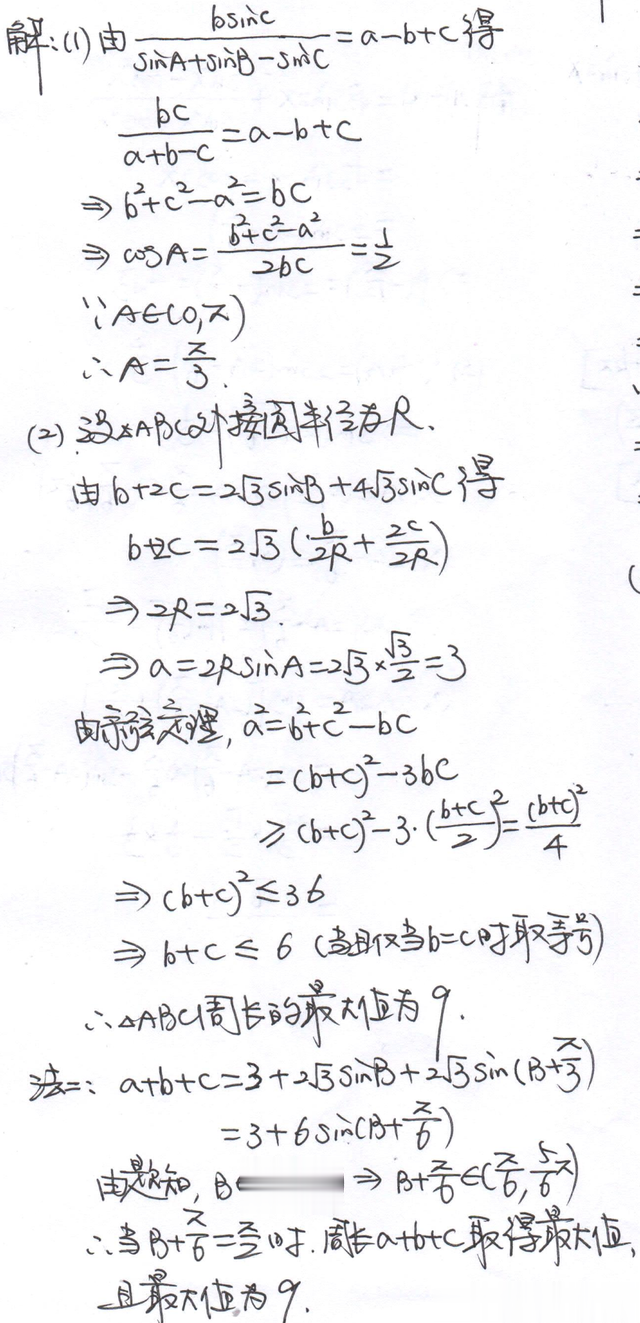 解:(1) 由 bsinC/(sinA+sinB-sinC) = a-b+c 得
bc/(a+b-c) = a-b+c
⇒ b²+c²-a²=bc
⇒ cosA = (b²+c²-a²)/2bc = 1/2
∵ A∈(0,π)
∴ A = π/3.
(2) 设△ABC外接圆半径为R.
由 b+2c = 2√3sinB+4√3sinC 得
b+2c = 2√3(b/2R + 2c/2R)
⇒ 2R=2√3
⇒ a=2RsinA=2√3×√3/2=3
由余弦定理, a²=b²+c²-bc
=(b+c)²-3bc
≥(b+c)²-3·((b+c)/2)²=(b+c)²/4
⇒ (b+c)²≤36
⇒ b+c ≤ 6 (当且仅当b=c时取等号)
∴△ABC周长的最大值为9.
法二: a+b+c=3+2√3sinB+2√3sin(B+π/3)
=3+6sin(B+π/6)
由题知, B ⇒ B+π/6∈(π/6, 5/6π)
∴当B+π/6=π/2时. 周长a+b+c取得最大值,
且最大值为9.